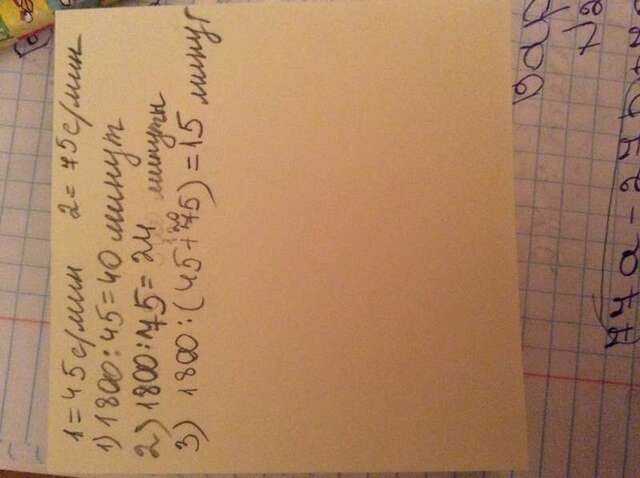 1 = 45 с/мин 2 = 75 с/мин
1) 1800:45=40 минут
2) 1800:75= 24 минуты
120
3) 1800:(45+75)=15 минут
вар
№2
77а-27